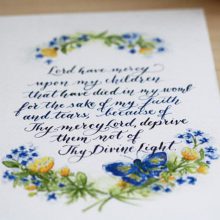 Lord have mercy
upon my children
that have died in my womb
for the sake of my faith
and tears, because of
Thy mercy Lord, deprive
them not of
Thy Divine Light.